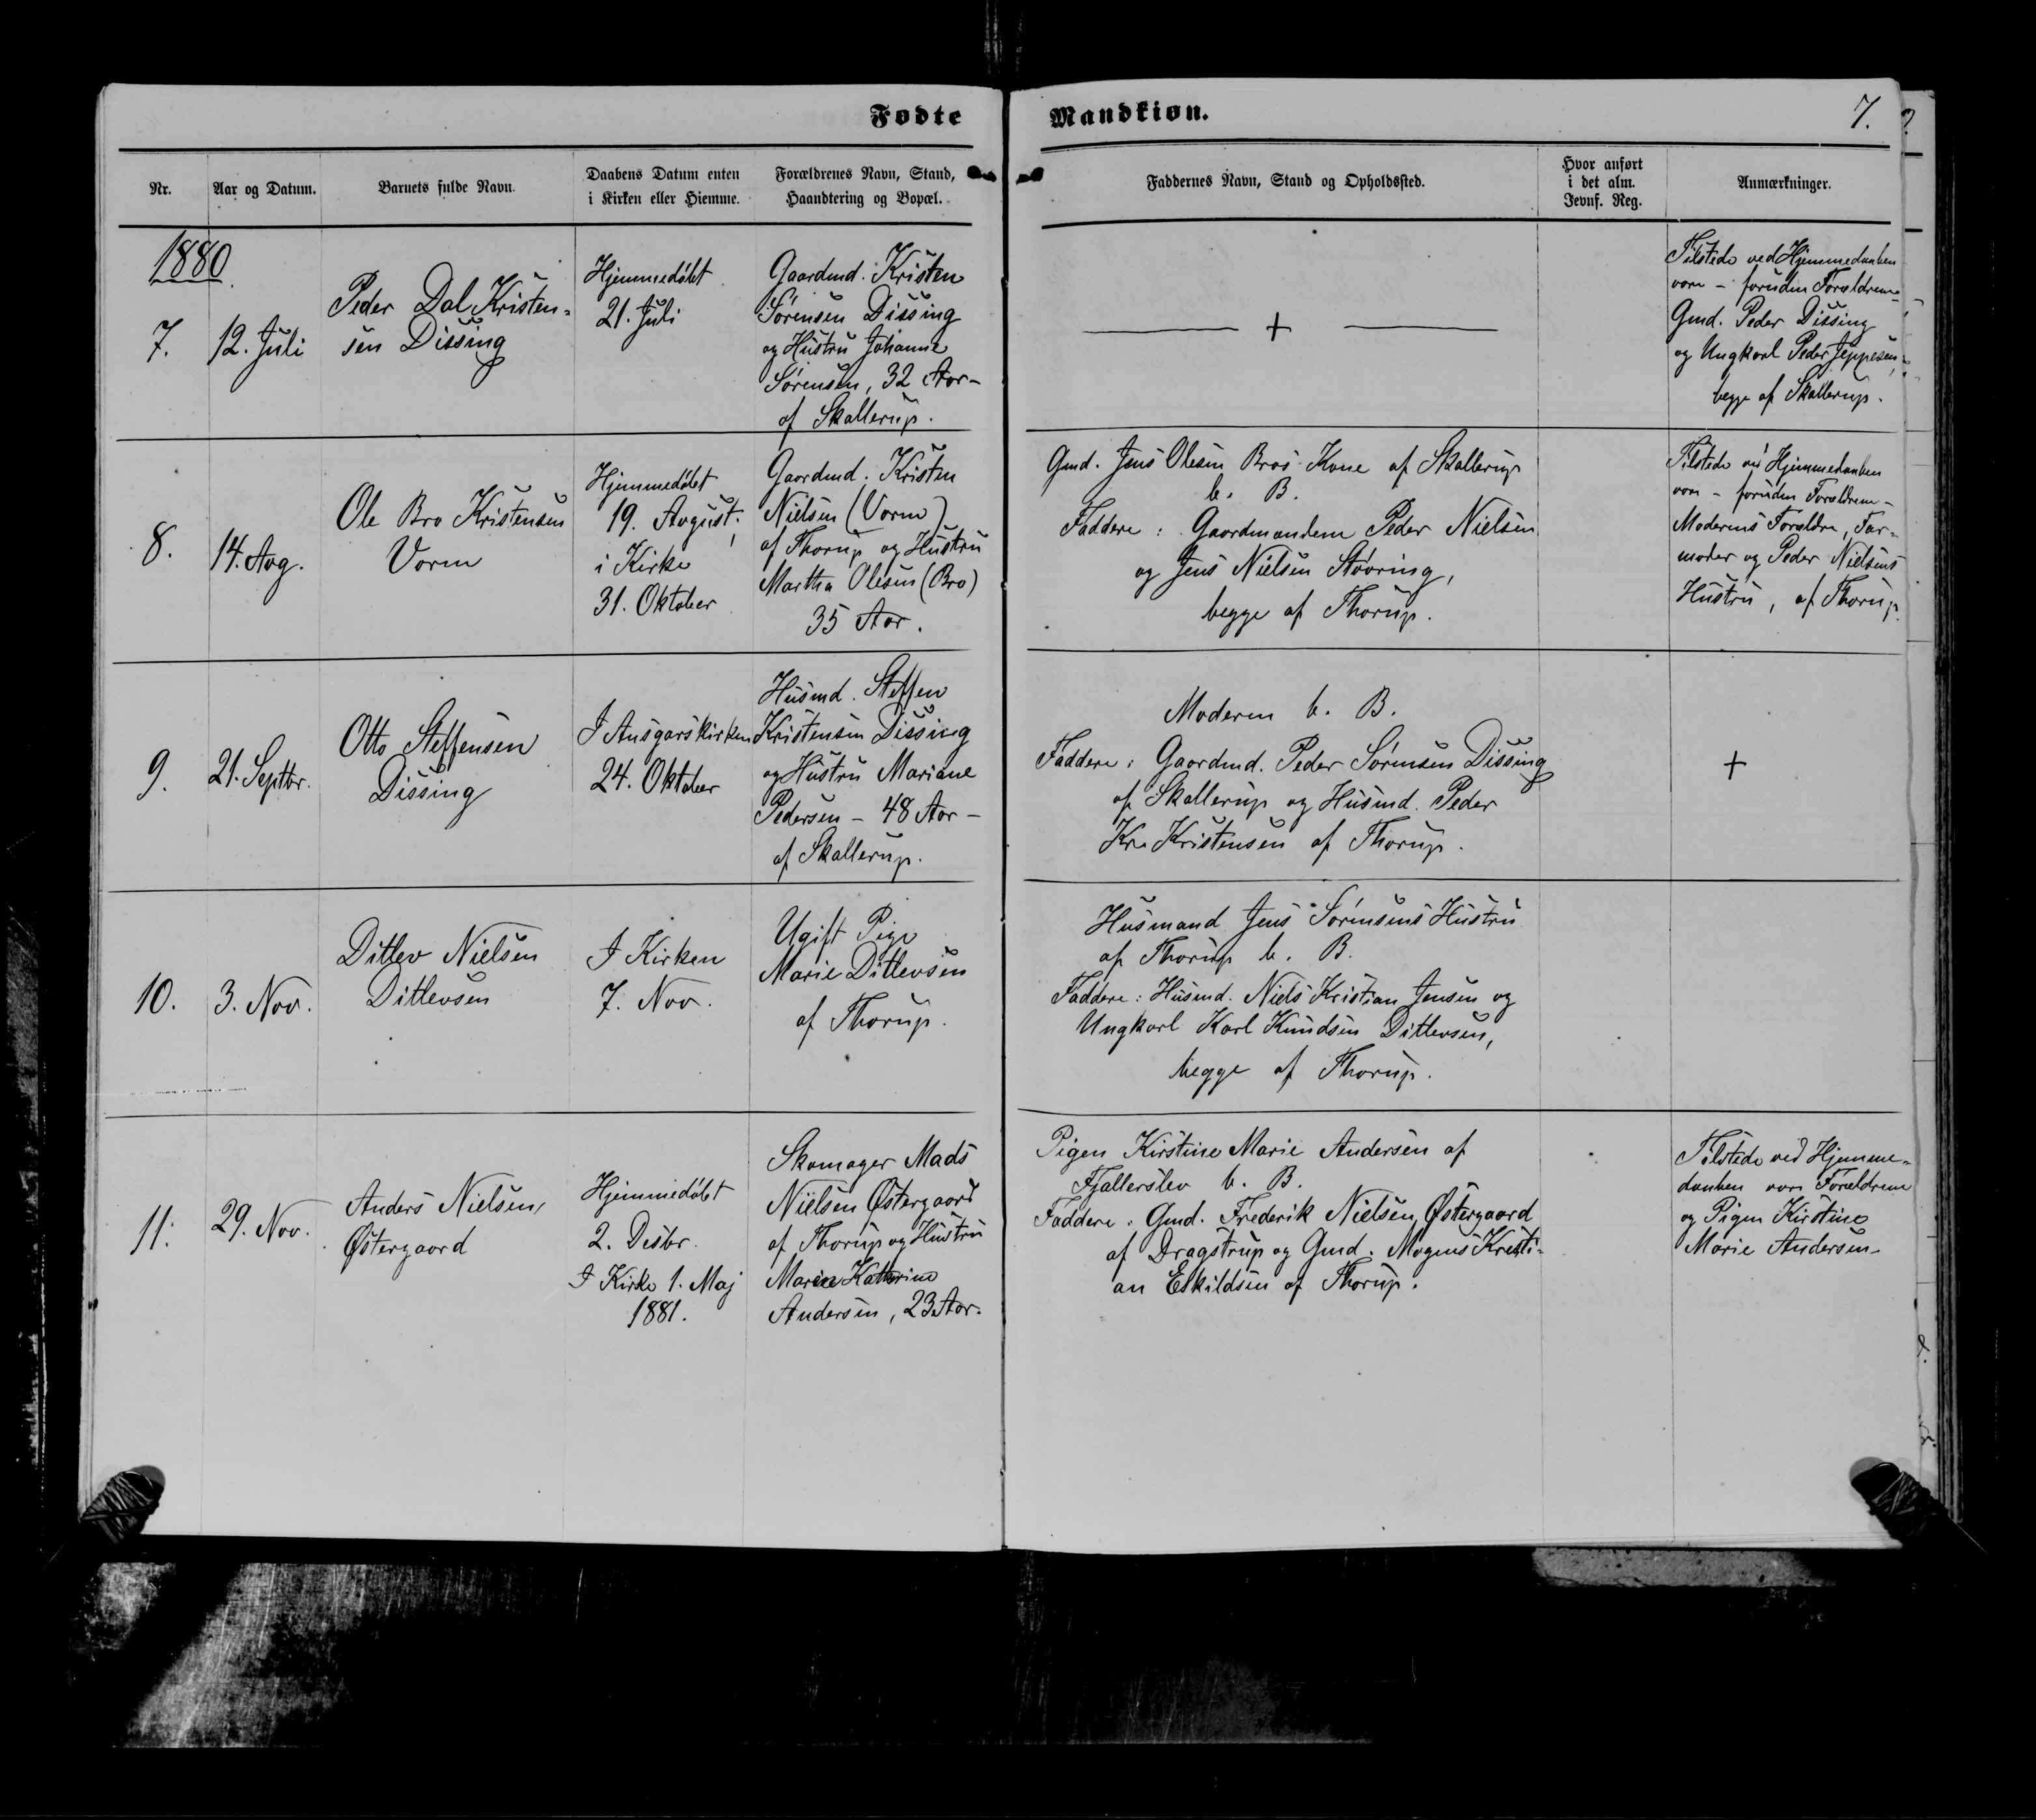 Fødte
Mandkiøn.
7.
Nr.
Aar og Datum.
Barnets fulde Navn.
Daabens Datum enten
i Kirken eller Hiemme.
Forældrenes Navn, Stand,
Haandtering og Bopæl.
Faddernes Navn, Stand og Opholdssted.
Hvor anført
i det alm.
Jevnf. Reg.
Anmærkninger.
1880.
7.
12. Juli
Peder Dal Kristen-
sen Dissing
Hjemmedøbt
21. Juli
Gaardmd. Kristen
Sørensen Dissing
og Hustru Johanne
Sørensen, 32 Aar -
af Skallerup.
+
Tilstede ved Hjemmedaaben
vare - foruden Forældrene -
Gmd. Peder Dissing
og Ungkarl Peder Jeppesen,
begge af Skallerup.
8.
14. Aug.
Ole Bro Kristensen
Vorm
Hjemmedøbt
19. August;
i Kirke
31. Oktober
Gaardmd. Kristen
Nielsen (Vorm)
af Thorup og Hustru
Martha Olesen (Bro)
35 Aar.
Gmd. Jens Olesen Bros Kone af Skallerup
b. B.
Faddere: Gaardmændene Peder Nielsen
og Jens Nielsen Støvring,
begge af Thorup.
Tilstede ved Hjemmedaaben
vare - foruden Forældrene -
Moderens Forældre, Far-
moder og Peder Nielsens
Hustru, af Thorup.
9.
21. Septbr.
Otto Steffensen
Dissing
I Ansgarskirken
24. Oktober
Husmd. Steffen
Kristensen Dissing
og Hustru Mariane
Pedersen - 48 Aar -
af Skallerup.
Moderen b. B.
Faddere: Gaardmd. Peder Sørensen Dissing
af Skallerup og Husmd. Peder
Kr. Kristensen af Thorup.
+
10.
3. Nov.
Ditlev Nielsen
Ditlevsen
I Kirken
7. Nov.
Ugift Pige
Marie Ditlevsen
af Thorup.
Husmand Jens Sørensens Hustru
af Thorup b. B.
Faddere: Husmd. Niels Kristian Jensen og
Ungkarl Karl Knudsen Ditlevsen,
begge af Thorup.
11.
29. Nov.
Anders Nielsen,
Østergaard
Hjemmedøbt
2. Desbr.
I Kirke 1. Maj
1881.
Skomager Mads
Nielsen Østergaard
af Thorup og Hustru
Marie Kathrine
Andersen, 23 Aar.
Pigen Kirstine Marie Andersen af
Fjallerslev b. B.
Faddere: Gmd. Frederik Nielsen Østergaard
af Dragstrup og Gmd. Mogens Kristi-
an Eskildsen af Thorup.
Tilstede ved Hjemme-
daaben vare Forældrene
og Pigen Kirstine
Marie Andersen -